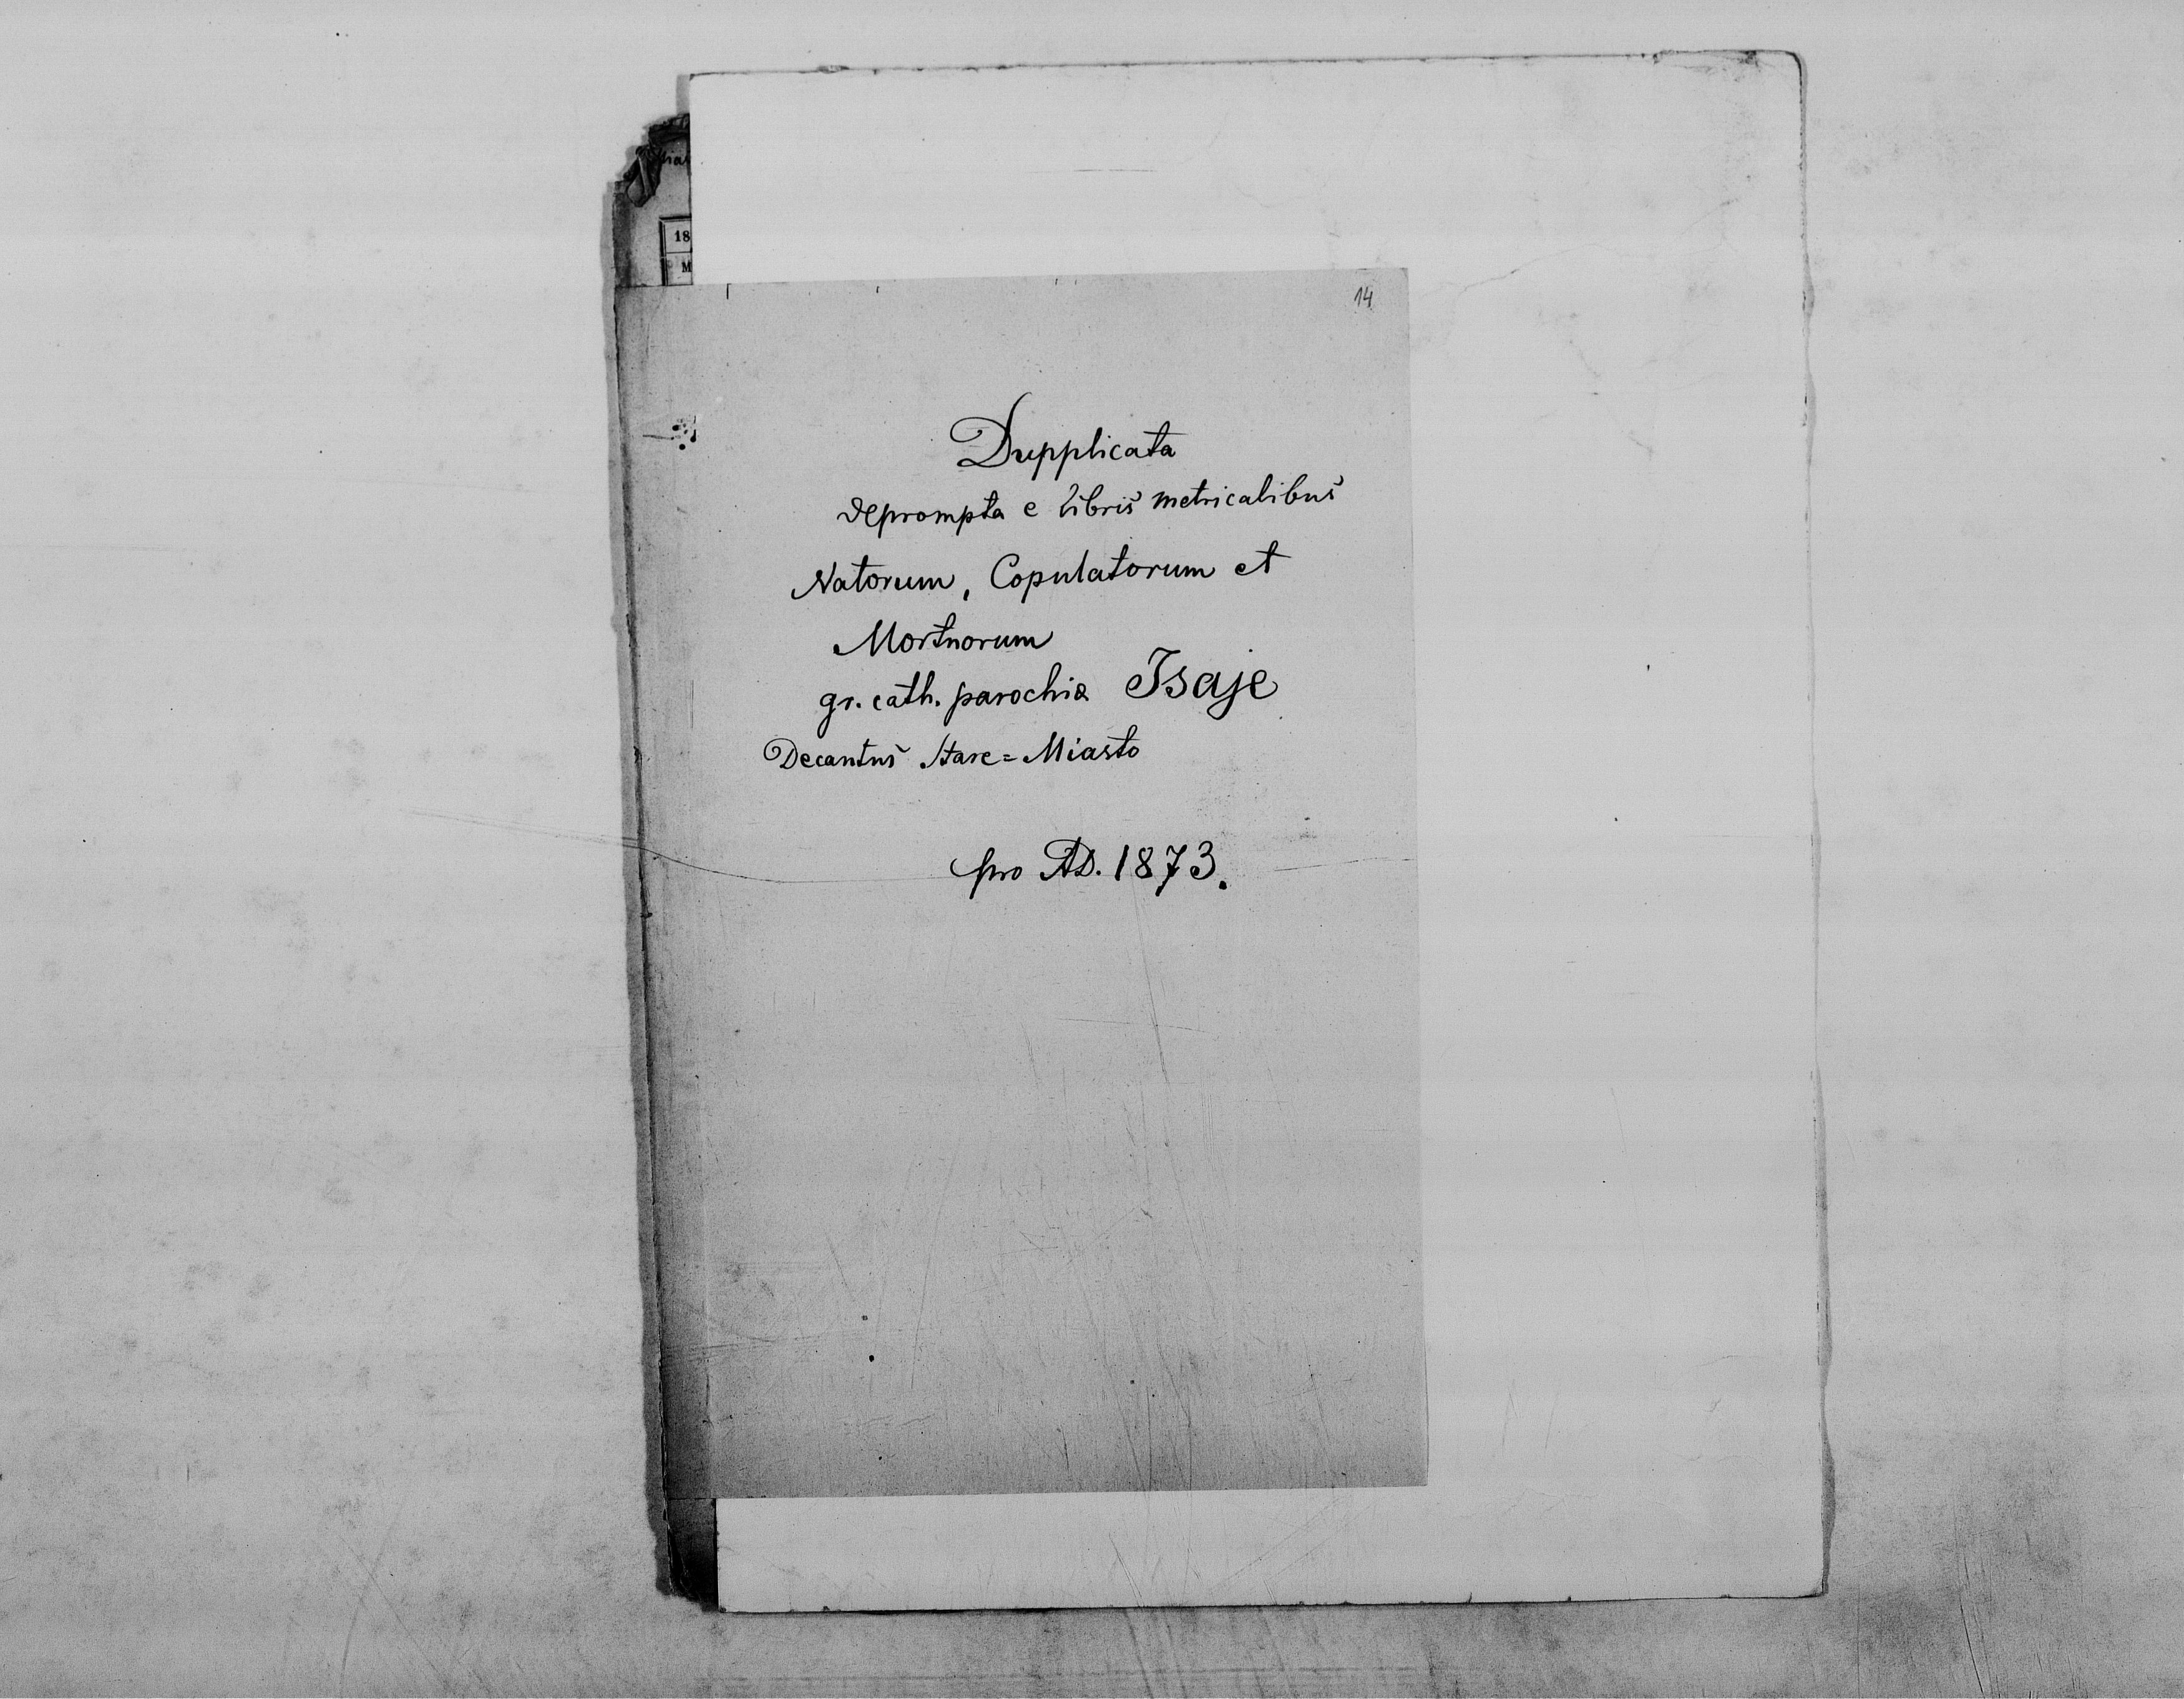 14
Dupplicata
deprompta e libris metricalibus
Natorum, Copulatorum et
Mortuorum
gr. cath. parochiæ Isaje
Decantus Stare=Miasto
pro AD. 1873.
18
M